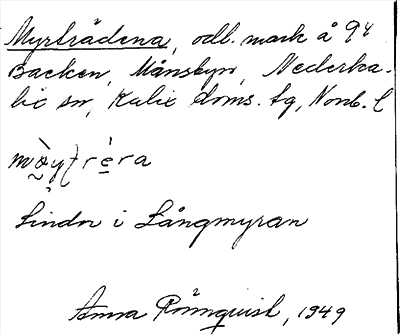 Myrträdena, odl. mark å 94
Backen, Månsbyn, Nederka-
lix sn, Kalix doms. tg, Norrb. l
Lindor i Långmyran
Anna Rönnquist, 1949